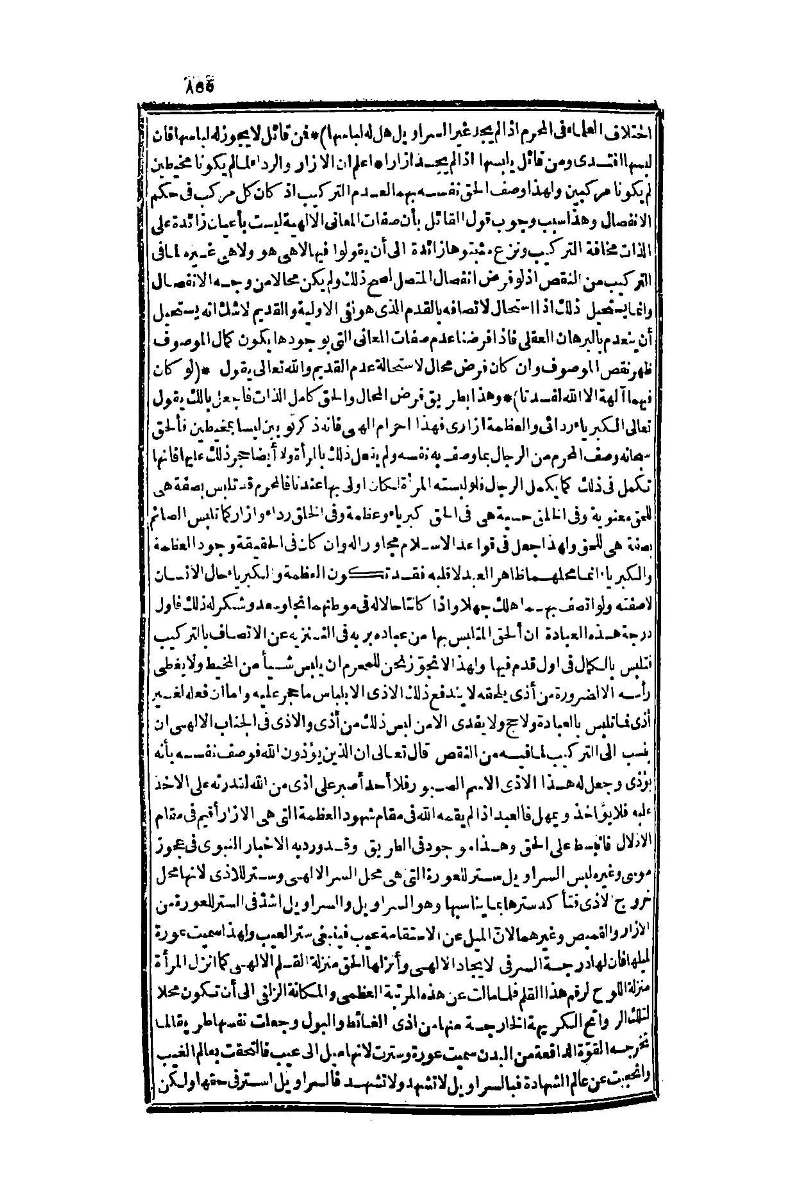 ٨٥٥
اختلاف العلماء فى المحرم اذا لم يجد غير السراويل هل له لباسها)* فن قائل لا يجوز له لباسها فان
لبسها افتدى ومن قائل يلبسها اذا لم يجد ازارا* اعلم ان الازار والرداء لما لم يكونا مخيطين
لم يكونا مركبين ولهذا وصف الحق نفسه بهما لعدم التركيب اذ كان كل مركب فى حكم
الانفصال وهذا سبب وجوب قول القائل بأن صفات المعانى الالهية ليست بأعيان زائدة على
الذات مخافة التركيب ونزع مثبتوها زائدة الى أن يقولوا فيها لا هى هو ولا هى غيره لما فى
التركيب من النقص اذ لو فرض انفصال المتصل لصح ذلك ولم يكن محالا من وجه الانفصال
وانما يستحيل ذلك اذا استحال لاتصافه بالقدم الذى هو نفى الاولية والقديم لا شك انه يستحيل
أن ينعدم بالبرهان العقلى فاذا فرضنا عدم صفات المعانى التى بوجودها يكون كمال الموصوف
ظهر نقص الموصوف وان كان فرض محال لاستحالة عدم القديم والله تعالى يقول *(لو كان
فيهما آلهة الا الله لفسدتا)* وهذا بطريق فرض المحال والحق كامل الذات فاجعل بالك يقول
تعالى الكبرياء ردائى والعظمة ازارى فهذا احرام الهى فانه ذكر ثوبين ليسا بمخيطين فألحق
سبحانه وصف المحرم من الرجال بما وصف به نفسه ولم يفعل ذلك بالمرأة ولا أيضا حجر ذلك عليها فانها
تكمل فى ذلك كما يكمل الرجال فلو لبسته المرأة لكان اولى بها عندنا فالمحرم قد تلبس بصفة هى
للحق معنوية وفى الخلق حسية هى فى الحق كبرياء وعظمة وفى الخلق رداء وازار كما تلبس الصائم
بصفة هى للحق ولهذا جعل فى قواعد الاسلام مجاورا له وان كان فى الحقيقة وجود العظمة
والكبرياء انما محلهما ظاهر العبد لا قلبه فقد تكون العظمة والكبرياء حال الانسان
لا صفته ولو اتصف بهما هلك جهلا واذا كانتا حالا له فى موطنهما نجا وسعد وشكر له ذلك فاول
درجة هذه العبادة ان ألحق المتلبس بها من عباده بربه فى التنزيه عن الاتصاف بالتركيب
فتلبس بالكمال فى اول قدم فيها ولهذا لا نجوز نحن للمحرم ان يلبس شيأ من المخيط ولا يغطى
رأسه الا لضرورة من أذى يلحقه لا يندفع ذلك الاذى الا بلباس ما حجر عليه واما ان فعله لغير
أذى فما تلبس بالعبادة ولا حج ولا يفدى الا من لبس ذلك من أذى والاذى فى الجناب الالهى ان
ينسب الى التركيب لما فيه من النقص قال تعالى ان الذين يؤذون الله فوصف نفسه بأنه
يؤذى وجعل له هذا الاذى الاسم الصبور فلا أحد أصبر على اذى من الله لقدرته على الاخذ
عليه فلا يؤاخذ ويمهل فالعبد اذا لم يقمه الله فى مقام شهود العظمة التى هى الازار أقيم فى مقام
الادلال فانبسط على الحق وهذا موجود فى الطريق وقد ورد به الاخبار النبوى فى عجوز
موسى وغيره لبس السراويل ستر للعورة التى هى محل السر الالهى وستر للاذى لانها محل
خروج الاذى فتأكد سترها بما يناسبها وهو السراويل والسراويل اشد فى الستر للعورة من
الازار والقميص وغيرهما لان الميل عن الاستقامة عيب فينبغى ستر العيب ولهذا سميت عورة
لميلها فان لها درجة السر فى الايجاد الالهى وأنزلها الحق منزلة القلم الالهى كما انزل المرأة
منزلة اللوح لرقم هذا القلم فلما مالت عن هذه المرتبة العظمى والمكانة الزلفى الى أن تكون محلا
لتلك الروائح الكريهة الخارجة منها من اذى الغائط والبول وجعلت نفسها طريقا لما
تخرجه القوة الدافعة من البدن سميت عورة وسترت لانها ميل الى عيب فالتحقت بعالم الغيب
وانحجبت عن عالم الشهادة فبالسراويل لا تشهد ولا تشهد فالسراويل استر فى حقها ولكن